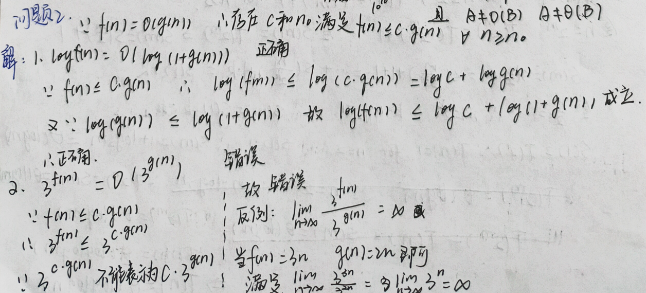 问题2. ∵ f(n)=O(g(n)) ∴存在 c和n₀满足 f(n)≤c·g(n) 且 A≠O(B) A≠Θ(B)
∀ n≥n₀
解: 1. log f(n) = O(log(1+g(n))) 正确
∵ f(n)≤ C·g(n) ∴ log(f(n)) ≤ log(c·g(n)) = log C + log g(n)
又∵ log(g(n)) ≤ log(1+g(n)) 故 log(f(n)) ≤ log C + log(1+g(n)) 成立.
∴正确.
2. 3^{f(n)} = O(3^{g(n)}) 错误
∵ f(n)≤ c·g(n)
∴ 3^{f(n)} ≤ 3^{c·g(n)}
∵ 3^{c·g(n)} 不能表示为 C·3^{g(n)}
故 错误
反例: lim_{n→∞} 3^{f(n)}/3^{g(n)} = ∞
当f(n)=3n g(n)=2n 即可
满足 lim_{n→∞} 3^{3n}/3^{2n} = lim_{n→∞} 3^n = ∞